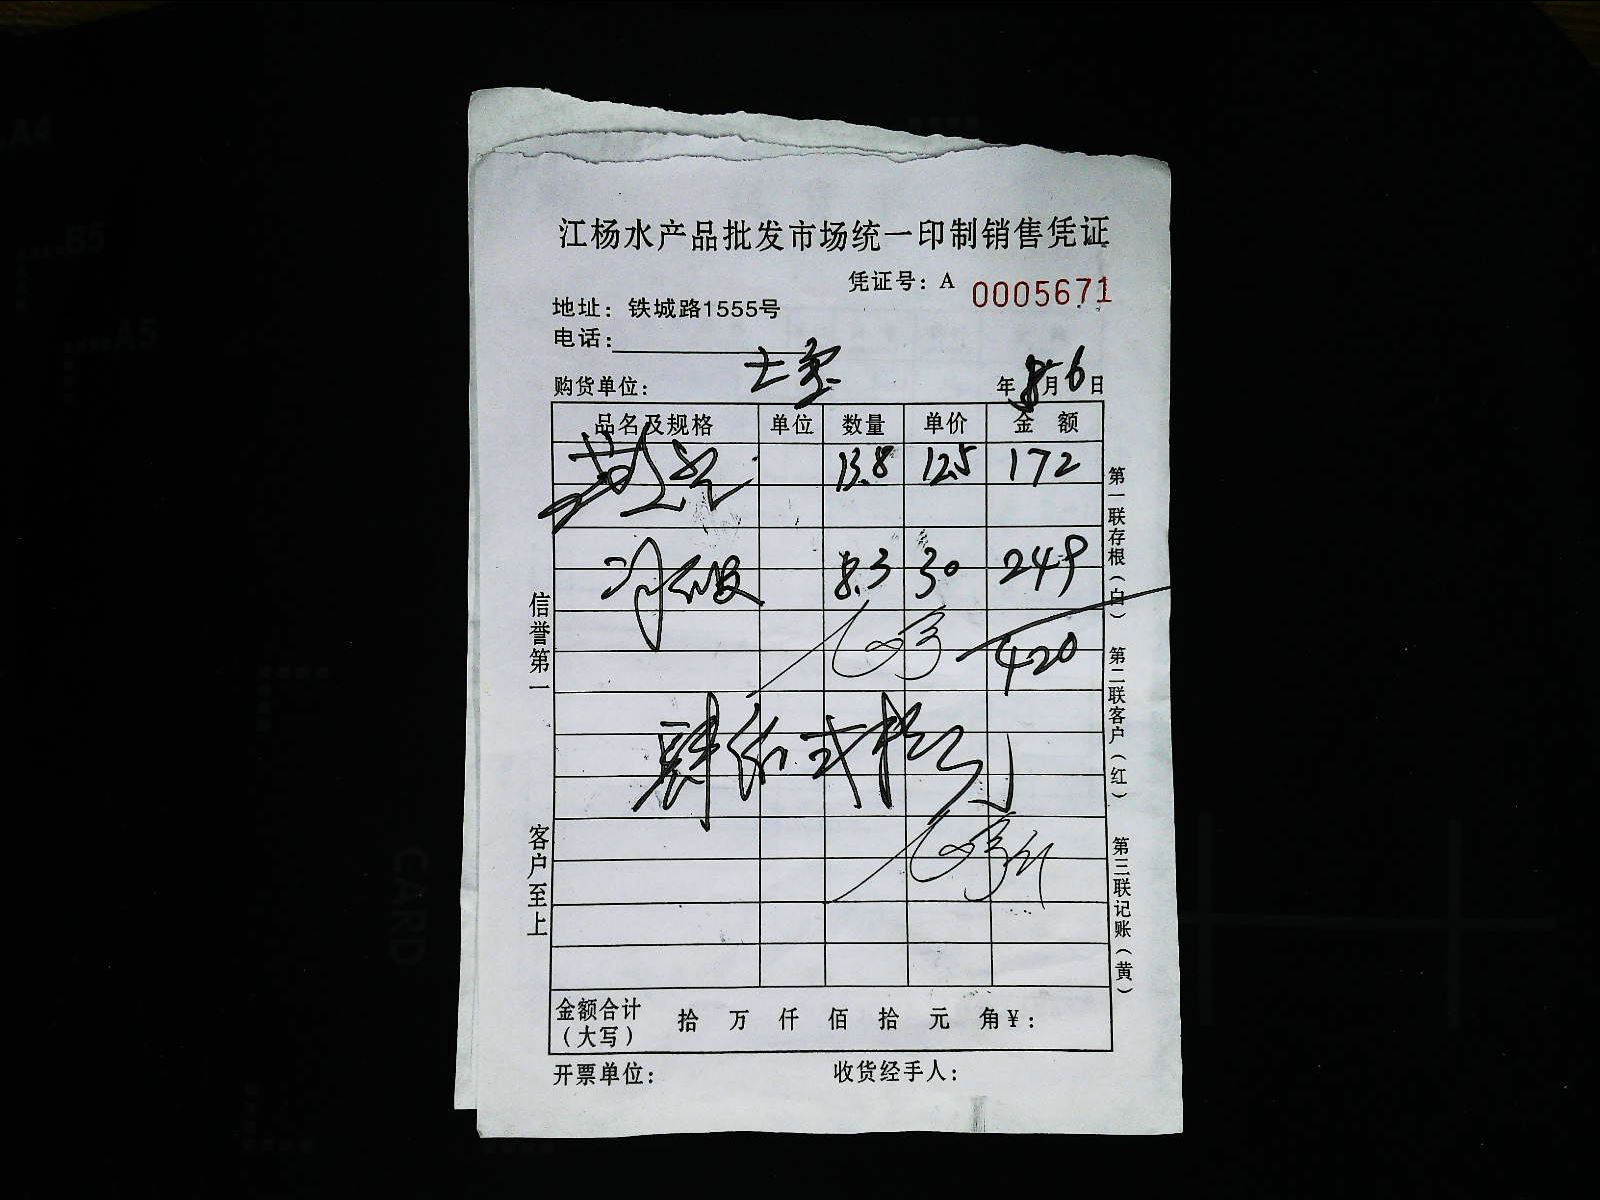 江杨水产品批发市场统一印制销售凭证
凭证号：A 0005671
地址：铁城路1555号
电话：
购货单位： 年 月 6 日
品名及规格 单位 数量 单价 金 额
13.8 12.5 172
8.3 30 249
420
肆佰弍拾
金额合计（大写） 拾 万 仟 佰 拾 元 角￥：
开票单位： 收货经手人：
信誉第一
客户至上
第一联存根（白）
第二联客户（红）
第三联记账（黄）
A4
B5
A5
CARD